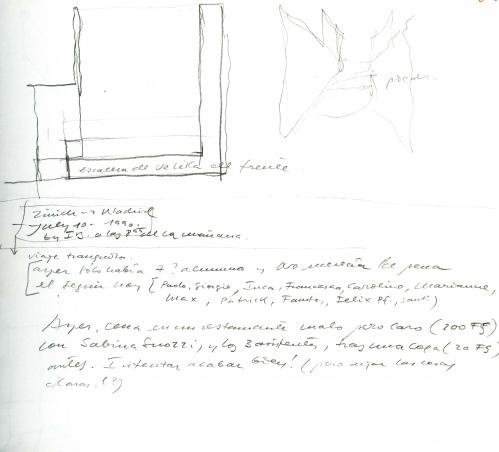 piedra
escalera de salida al frente
Zürich → Madrid
July 10 - 1990.
by IB. a las 8 de la mañana.
viaje tranquilo.
ayer solo había 7? alumnos y no merecía la pena
el seguir hoy [Paolo, Giorgio, Luca, Francesca, Carolina, Marianne,
Max, Patrick, Fausto, Felix Pf., Santi)
Ayer, cena modestamente malo pero caro (200 FS)
con Sabina Snozzi, y los 3 asistentes, tras una copa (20 FS)
antes. Intentar acabar bien! (pero mejor las cosas
claras!?)